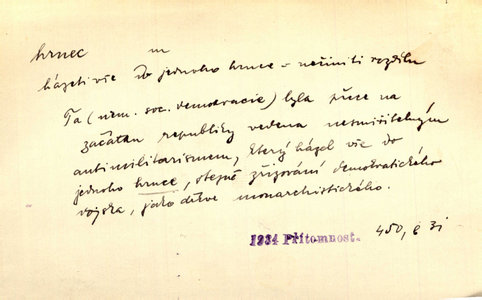 hrnec m
házeti vše do jednoho hrnce = nečiniti rozdílu
Ta (něm. soc. demokracie) byla přece na
začátku republiky vedena nesmiřitelným
antimilitarismem, který házel vše do
jednoho hrnce, stejně zřizování demokratického
vojska, jako dříve monarchistického.
1934 Přítomnost. 450,